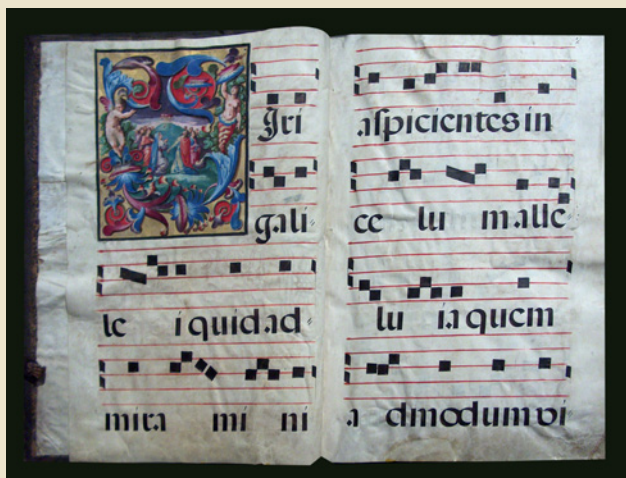 Iri
gali-
le i quid ad-
mira mi ni
aspicientes in
ce lu m alle
lu ia quem
a dmodum vi